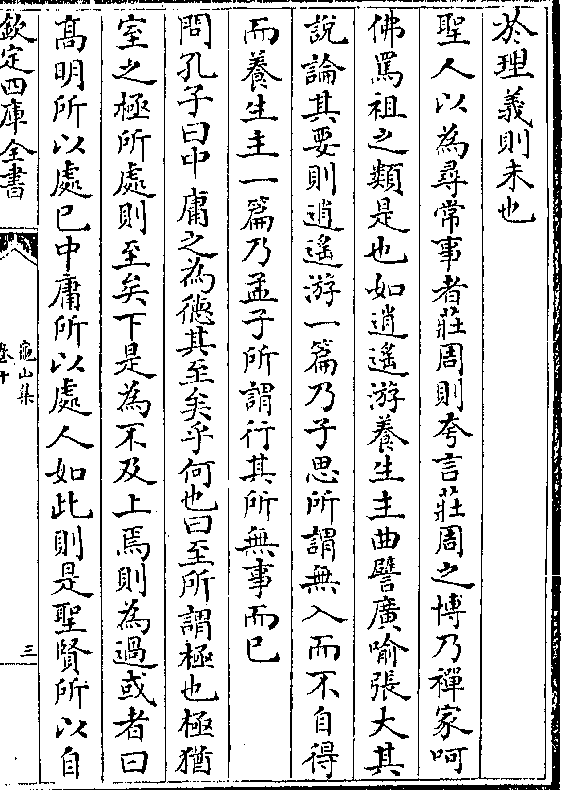 於理義則未也
聖人以為尋常事者莊周則夸言莊周之博乃禪家呵
佛罵祖之類是也如逍遙游養生主曲譬廣喻張大其
說論其要則逍遙游一篇乃子思所謂無入而不自得
而養生主一篇乃孟子所謂行其所無事而已
問孔子曰中庸之為徳其至矣乎何也曰至所謂極也極猶
室之極所處則至矣下是為不及上焉則為過或者曰
髙明所以處己中庸所以處人如此則是聖賢所以自
欽定四庫全書
龜山集
卷十
三